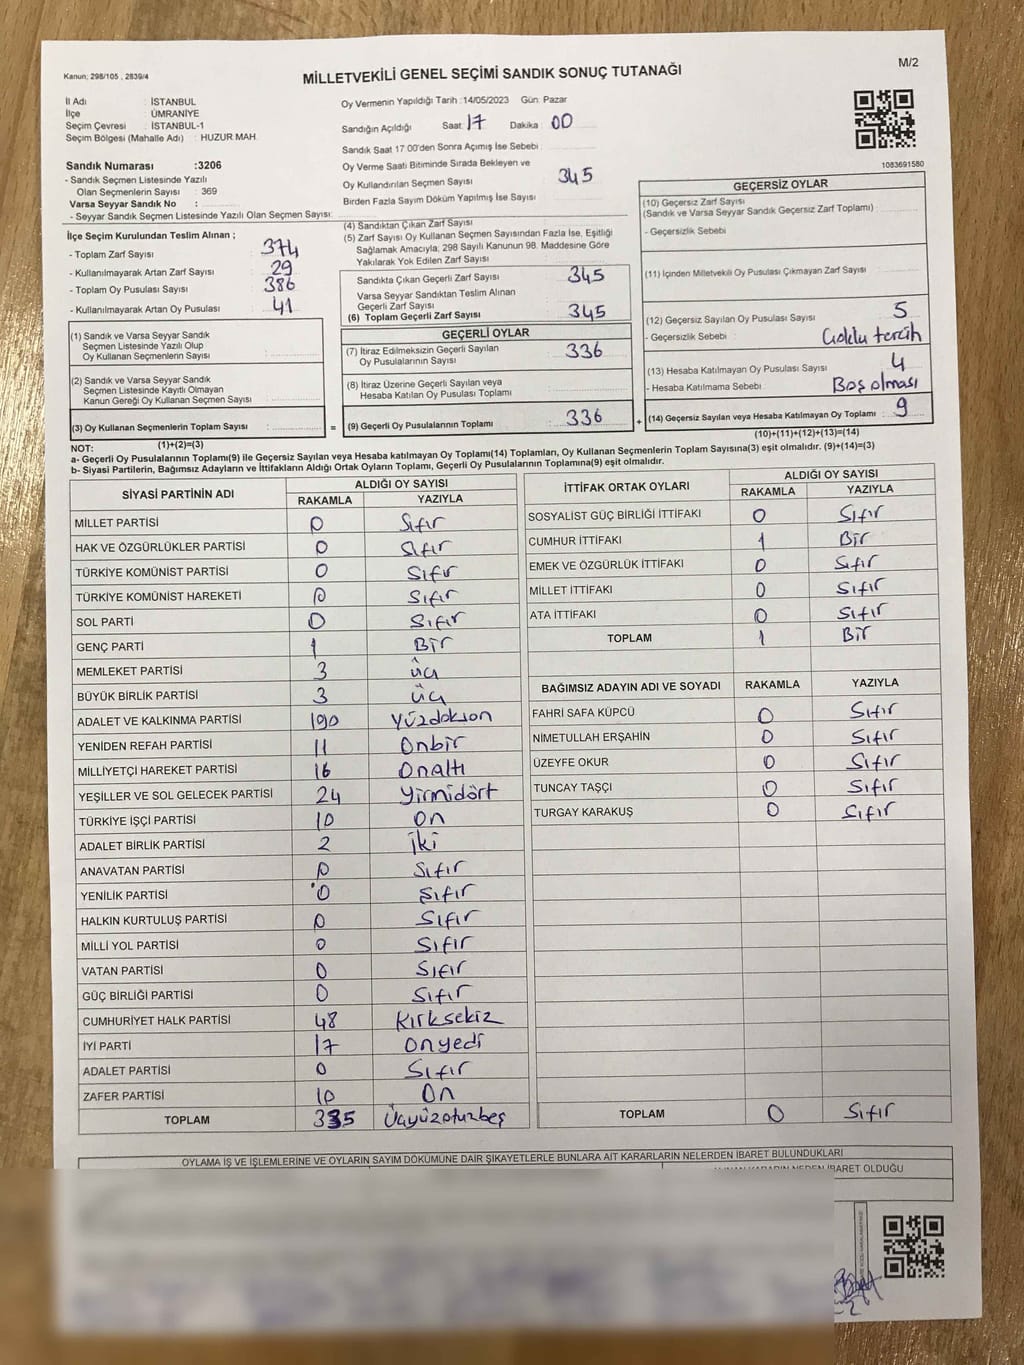 Kanun; 298/105 , 2839/4
MİLLETVEKİLİ GENEL SEÇİMİ SANDIK SONUÇ TUTANAĞI
M/2
İl Adı : İSTANBUL
İlçe : ÜMRANİYE
Seçim Çevresi : İSTANBUL-1
Seçim Bölgesi (Mahalle Adı) : HUZUR MAH.
Sandık Numarası :3206
- Sandık Seçmen Listesinde Yazılı
Olan Seçmenlerin Sayısı : 369
Varsa Seyyar Sandık No :
- Seyyar Sandık Seçmen Listesinde Yazılı Olan Seçmen Sayısı:
Oy Vermenin Yapıldığı Tarih :14/05/2023 Gün: Pazar
Sandığın Açıldığı Saat: 17 Dakika : 00
Sandık Saat 17 00'den Sonra Açımış İse Sebebi :
Oy Verme Saati Bitiminde Sırada Bekleyen ve
Oy Kullandırılan Seçmen Sayısı 345
Birden Fazla Sayım Döküm Yapılmış İse Sayısı :
1083691580
İlçe Seçim Kurulundan Teslim Alınan ;
- Toplam Zarf Sayısı : 374
- Kullanılmayarak Artan Zarf Sayısı : 29
- Toplam Oy Pusulası Sayısı : 386
- Kullanılmayarak Artan Oy Pusulası : 41
(1) Sandık ve Varsa Seyyar Sandık
Seçmen Listesinde Yazılı Olup
Oy Kullanan Seçmenlerin Sayısı :
(2) Sandık ve Varsa Seyyar Sandık
Seçmen Listesinde Kayıtlı Olmayan
Kanun Gereği Oy Kullanan Seçmen Sayısı :
(3) Oy Kullanan Seçmenlerin Toplam Sayısı :
(1)+(2)=(3)
(4) Sandıktan Çıkan Zarf Sayısı :
(5) Zarf Sayısı Oy Kullanan Seçmen Sayısından Fazla İse, Eşitliği
Sağlamak Amacıyla, 298 Sayılı Kanunun 98. Maddesine Göre
Yakılarak Yok Edilen Zarf Sayısı :
Sandıkta Çıkan Geçerli Zarf Sayısı : 345
Varsa Seyyar Sandıktan Teslim Alınan
Geçerli Zarf Sayısı :
(6) Toplam Geçerli Zarf Sayısı : 345
GEÇERLİ OYLAR
(7) İtiraz Edilmeksizin Geçerli Sayılan
Oy Pusulalarının Sayısı : 336
(8) İtiraz Üzerine Geçerli Sayılan veya
Hesaba Katılan Oy Pusulası Toplamı :
= (9) Geçerli Oy Pusulalarının Toplamı : 336 +
GEÇERSİZ OYLAR
(10) Geçersiz Zarf Sayısı
(Sandık ve Varsa Seyyar Sandık Geçersiz Zarf Toplamı) :
- Geçersizlik Sebebi :
(11) İçinden Milletvekili Oy Pusulası Çıkmayan Zarf Sayısı :
(12) Geçersiz Sayılan Oy Pusulası Sayısı : 5
- Geçersizlik Sebebi : Çoklu tercih
(13) Hesaba Katılmayan Oy Pusulası Sayısı : 4
- Hesaba Katılmama Sebebi : Boş olması
(14) Geçersiz Sayılan veya Hesaba Katılmayan Oy Toplamı : 9
(10)+(11)+(12)+(13)=(14)
NOT:
a- Geçerli Oy Pusulalarının Toplamı(9) ile Geçersiz Sayılan veya Hesaba katılmayan Oy Toplamı(14) Toplamları, Oy Kullanan Seçmenlerin Toplam Sayısına(3) eşit olmalıdır. (9)+(14)=(3)
b- Siyasi Partilerin, Bağımsız Adayların ve İttifakların Aldığı Ortak Oyların Toplamı, Geçerli Oy Pusulalarının Toplamına(9) eşit olmalıdır.
SİYASİ PARTİNİN ADI ALDIĞI OY SAYISI
RAKAMLA YAZIYLA
MİLLET PARTİSİ 0 Sıfır
HAK VE ÖZGÜRLÜKLER PARTİSİ 0 Sıfır
TÜRKİYE KOMÜNİST PARTİSİ 0 Sıfır
TÜRKİYE KOMÜNİST HAREKETİ 0 Sıfır
SOL PARTİ 0 Sıfır
GENÇ PARTİ 1 Bir
MEMLEKET PARTİSİ 3 üç
BÜYÜK BİRLİK PARTİSİ 3 üç
ADALET VE KALKINMA PARTİSİ 190 yüzdokson
YENİDEN REFAH PARTİSİ 11 Onbir
MİLLİYETÇİ HAREKET PARTİSİ 16 Onaltı
YEŞİLLER VE SOL GELECEK PARTİSİ 24 Yirmidört
TÜRKİYE İŞÇİ PARTİSİ 10 On
ADALET BİRLİK PARTİSİ 2 iki
ANAVATAN PARTİSİ 0 Sıfır
YENİLİK PARTİSİ 0 Sıfır
HALKIN KURTULUŞ PARTİSİ 0 Sıfır
MİLLİ YOL PARTİSİ 0 Sıfır
VATAN PARTİSİ 0 Sıfır
GÜÇ BİRLİĞİ PARTİSİ 0 Sıfır
CUMHURİYET HALK PARTİSİ 48 Kırksekiz
İYİ PARTİ 17 Onyedi
ADALET PARTİSİ 0 Sıfır
ZAFER PARTİSİ 10 On
TOPLAM 335 Üçyüzotuzbeş
İTTİFAK ORTAK OYLARI ALDIĞI OY SAYISI
RAKAMLA YAZIYLA
SOSYALİST GÜÇ BİRLİĞİ İTTİFAKI 0 Sıfır
CUMHUR İTTİFAKI 1 Bir
EMEK VE ÖZGÜRLÜK İTTİFAKI 0 Sıfır
MİLLET İTTİFAKI 0 Sıfır
ATA İTTİFAKI 0 Sıfır
TOPLAM 1 Bir
BAĞIMSIZ ADAYIN ADI VE SOYADI RAKAMLA YAZIYLA
FAHRİ SAFA KÜPCÜ 0 Sıfır
NİMETULLAH ERŞAHİN 0 Sıfır
ÜZEYFE OKUR 0 Sıfır
TUNCAY TAŞÇI 0 Sıfır
TURGAY KARAKUŞ 0 Sıfır
TOPLAM 0 Sıfır
OYLAMA İŞ VE İŞLEMLERİNE VE OYLARIN SAYIM DÖKÜMÜNE DAİR ŞİKAYETLERLE BUNLARA AİT KARARLARIN NELERDEN İBARET BULUNDUKLARI
KARARIN NEDEN İBARET OLDUĞU